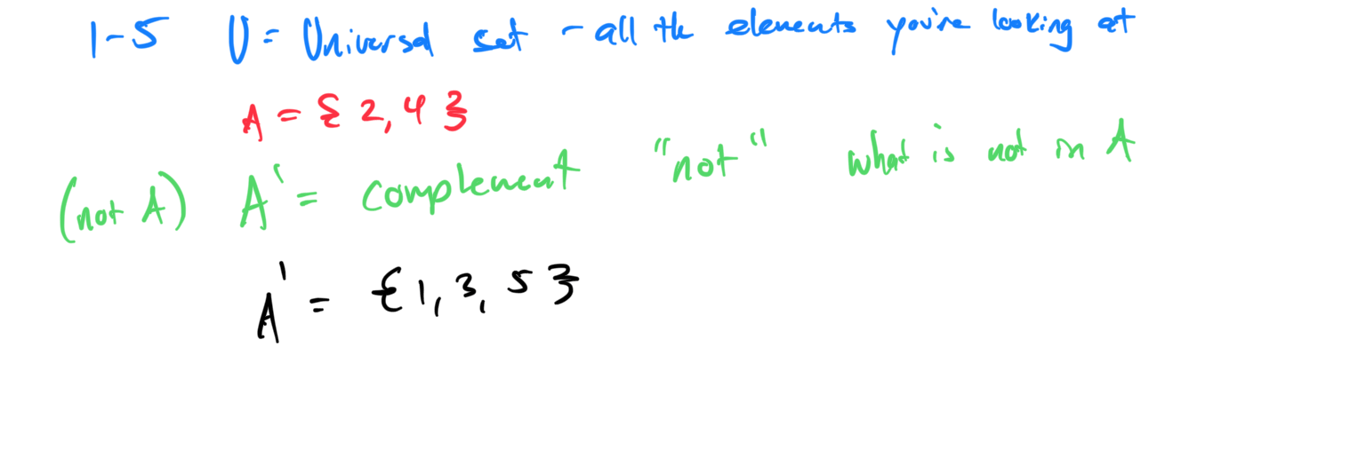 1-5 U = Universal set - all the elements you're looking at
A = { 2, 4 }
(not A) A' = complement "not" what is not in A
A' = { 1, 3, 5 }